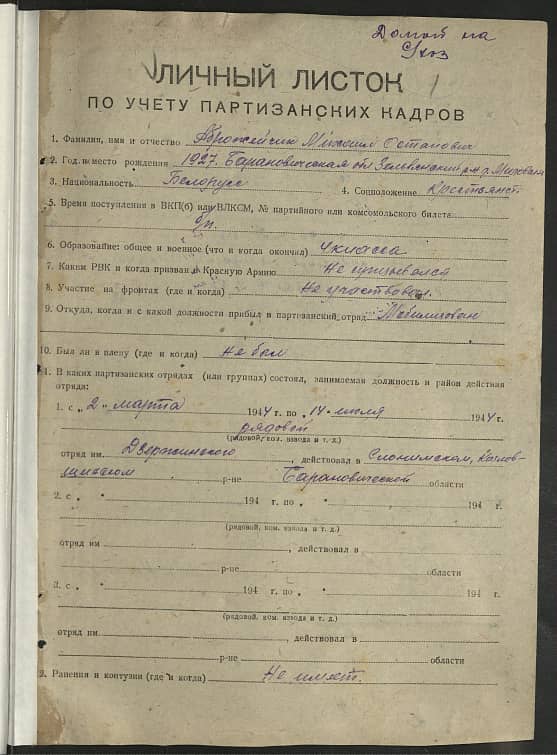 Домой на
ЛИЧНЫЙ ЛИСТОК
ПО УЧЕТУ ПАРТИЗАНСКИХ КАДРОВ
1. Фамилия, имя и отчество Михаил Остапович
2. Год и место рождения 1927. Барановическая об. Зельвенский р-н д.
3. Национальность Белорусс 4. Соцположение Крестьянст.
5. Время поступления в ВКП(б) или ВЛКСМ, № партийного или комсомольского билета
б/п.
6. Образование: общее и военное (что и когда окончил) 4 класса
7. Каким РВК и когда призван в Красную Армию Не призывался
8. Участие на фронтах (где и когда) Не участвовал.
9. Откуда, когда и с какой должности прибыл в партизанский отряд Мобилизован
10. Был ли в плену (где и когда) Не был
1. В каких партизанских отрядах (или группах) состоял, занимаемая должность и район действия
отряда:
1. с „ 2 " марта 1944 г. по „ 14 " июля 1944 г.
рядовой
(рядовой, ком. взвода и т. д.)
отряд им. Дзержинского, действовал в Слонимском, Козлов-
щинском р-не Барановической области
2. с „ " 194 г. по „ " 194 г.
(рядовой, ком. взвода и т. д.)
отряд им , действовал в
р-не области
3. с „ " 194 г. по „ " 194 г.
(рядовой, ком. взвода и т. д.)
отряд им. , действовал в
р-не области
2. Ранения и контузии (где и когда) Не имеет.